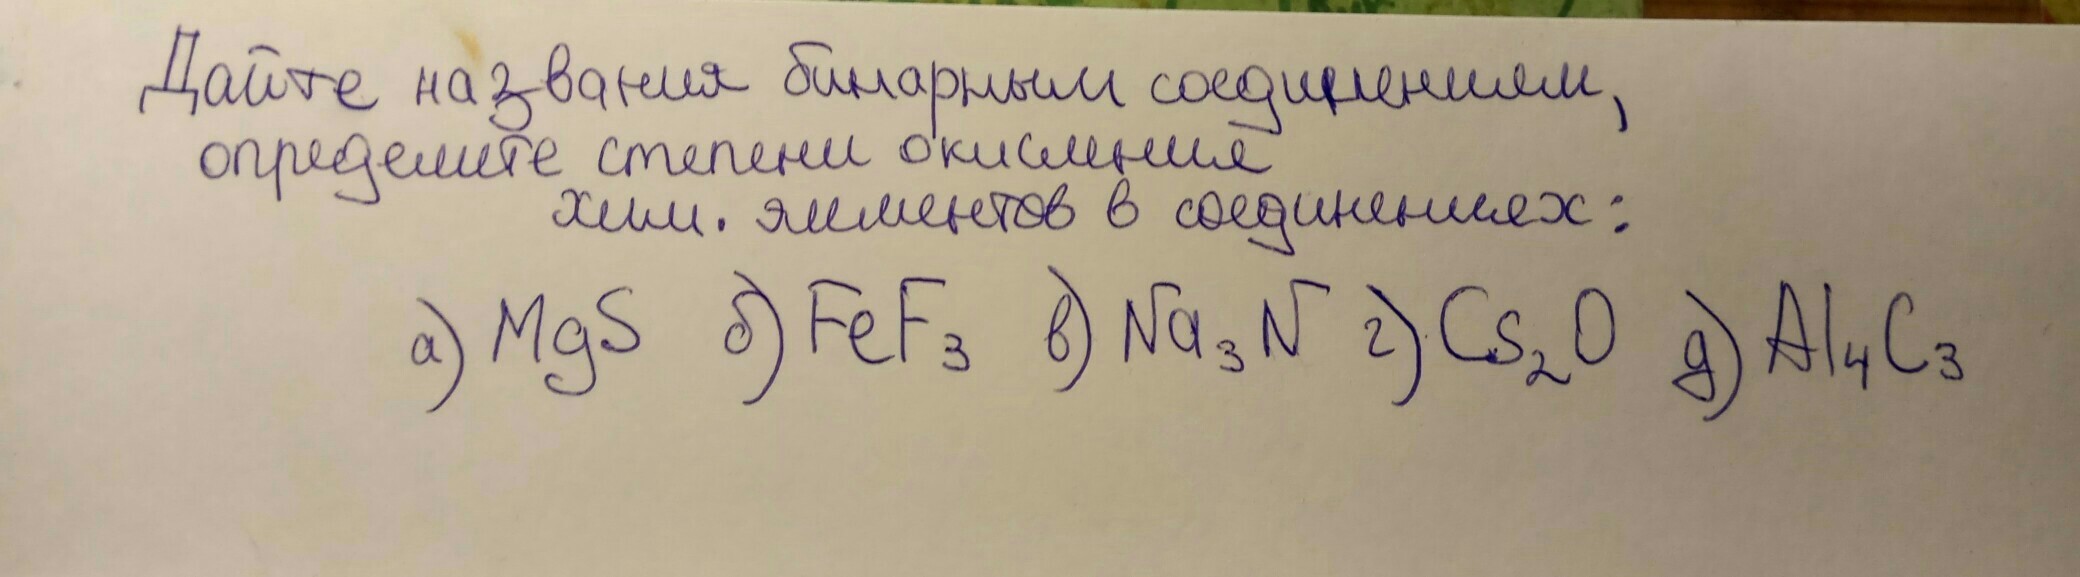 Дайте названия бинарным соединениям,
определите степени окисления
хим. элементов в соединениях:
а) MgS б) FeF₃ в) Na₃N г) Cs₂O д) Al₄C₃